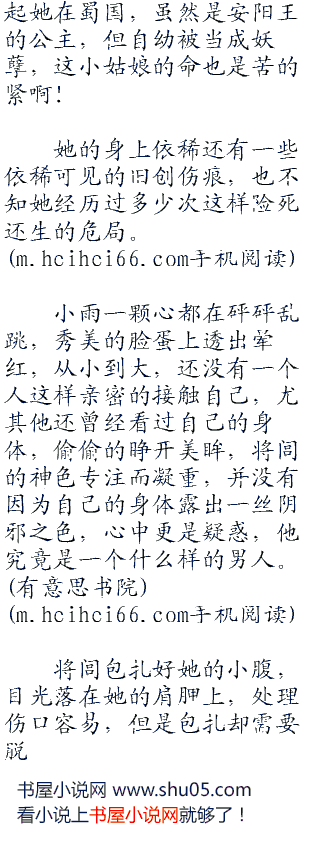 起她在蜀国，虽然是安阳王
的公主，但自幼被当成妖
孽，这小姑娘的命也是苦的
紧啊！
她的身上依稀还有一些
依稀可见的旧创伤痕，也不
知她经历过多少次这样险死
还生的危局。
(m.hcihci66.com手机阅读)
小雨一颗心都在砰砰乱
跳，秀美的脸蛋上透出晕
红，从小到大，还没有一个
人这样亲密的接触自己，尤
其他还曾经看过自己的身
体，偷偷的睁开美眸，将闾
的神色专注而凝重，并没有
因为自己的身体露出一丝阴
邪之色，心中更是疑惑，他
究竟是一个什么样的男人。
(有意思书院)
(m.hcihci66.com手机阅读)
将闾包扎好她的小腹，
目光落在她的肩胛上，处理
伤口容易，但是包扎却需要
脱
书屋小说网 www.shu05.com
看小说上书屋小说网就够了！